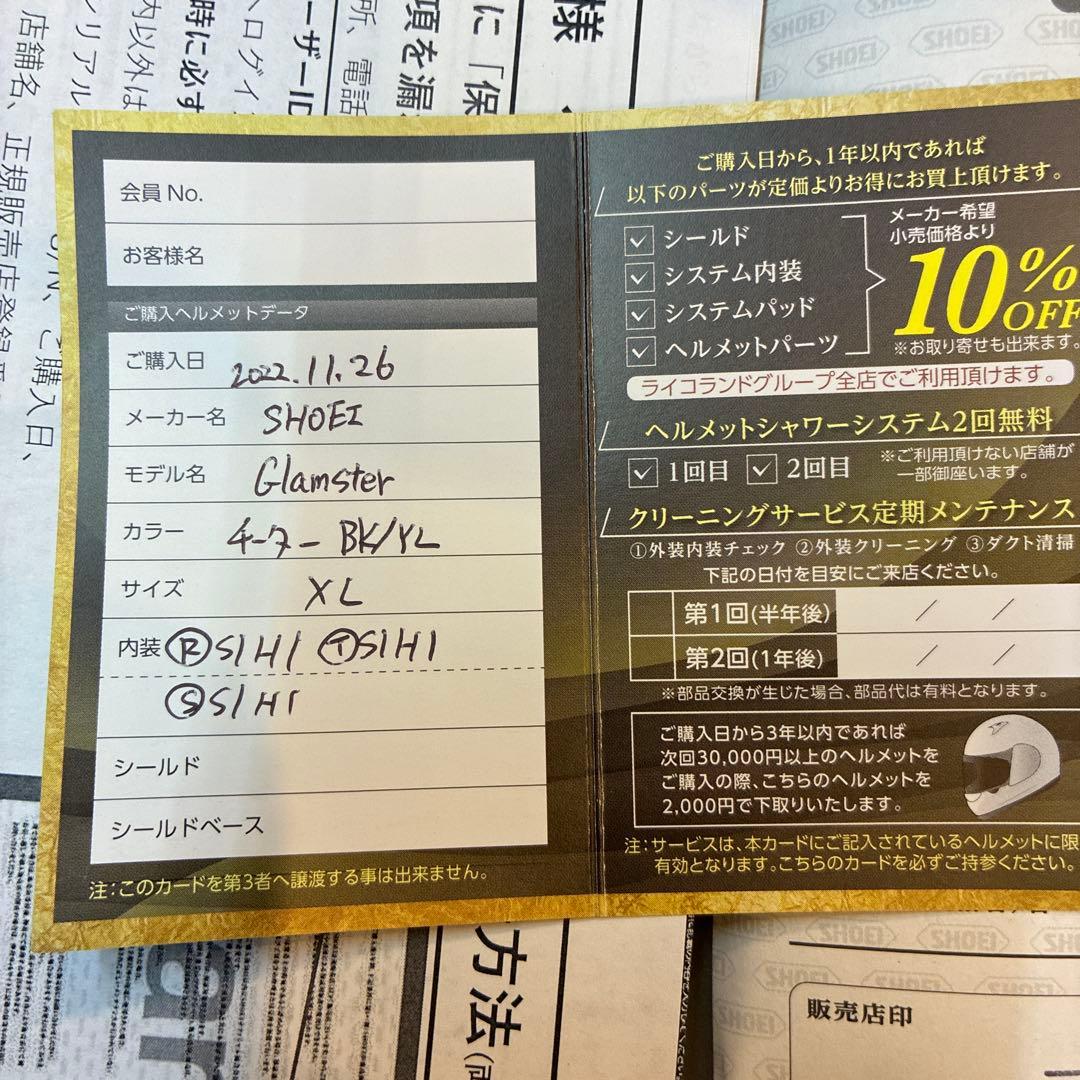 様
に「保
項を漏
所、電話
ーザーID
ヘログイ
時に必ず
内以外は
リアル
店舗名、正規販売店登録
ご購入日、
SHOEI
会員No.
お客様名
ご購入ヘルメットデータ
ご購入日 2022.11.26
メーカー名 SHOEI
モデル名 Glamster
カラー チーター BK/YL
サイズ XL
内装 Ⓡ S1H1 Ⓣ S1H1
Ⓢ S1H1
シールド
シールドベース
注:このカードを第3者へ譲渡する事は出来ません。
ご購入日から、1年以内であれば
以下のパーツが定価よりお得にお買上頂けます。
シールド
システム内装
システムパッド
ヘルメットパーツ
メーカー希望
小売価格より
10%OFF
※お取り寄せも出来ます。
ライコランドグループ全店でご利用頂けます。
ヘルメットシャワーシステム2回無料
1回目 2回目
※ご利用頂けない店舗が
一部御座います。
クリーニングサービス定期メンテナンス
①外装内装チェック ②外装クリーニング ③ダクト清掃
下記の日付を目安にご来店ください。
第1回(半年後) / /
第2回(1年後) / /
※部品交換が生じた場合、部品代は有料となります。
ご購入日から3年以内であれば
次回30,000円以上のヘルメットを
ご購入の際、こちらのヘルメットを
2,000円で下取りいたします。
注:サービスは、本カードにご記入されているヘルメットに限
有効となります。こちらのカードを必ずご持参ください。
方法
SHOEI
販売店印